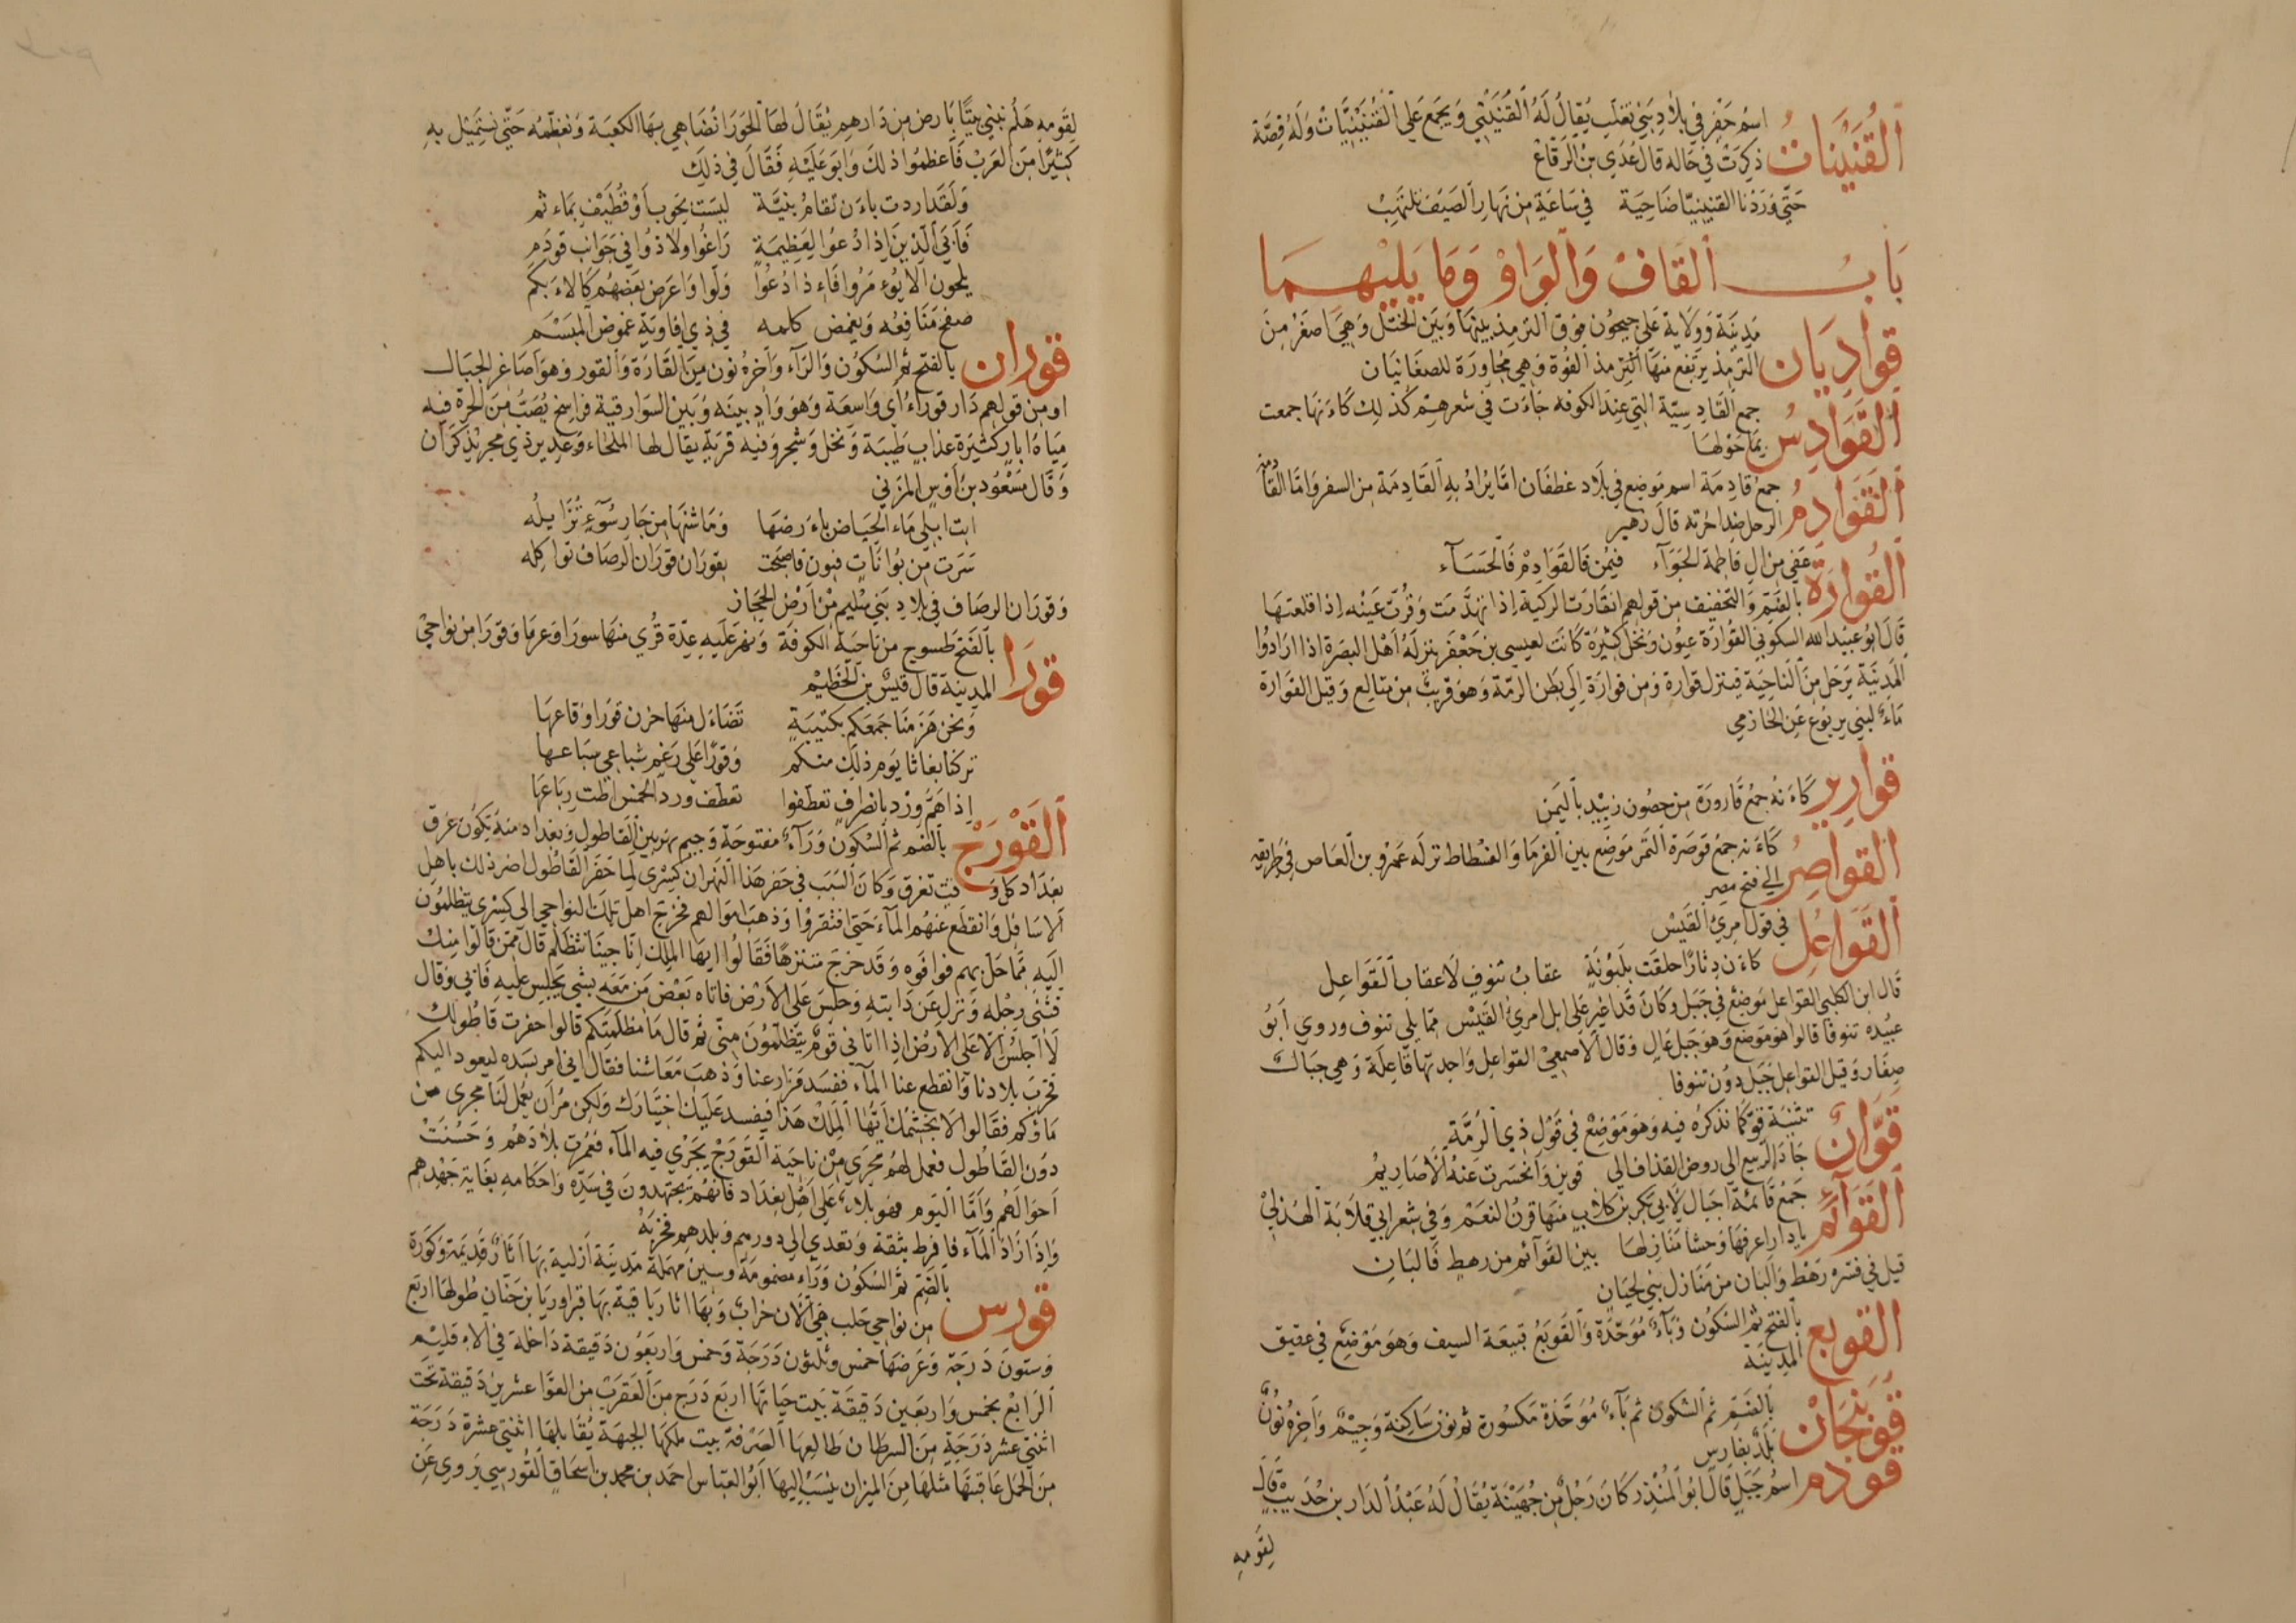 القُنَيْنَاتُ اسم حَفْرٍ في بلادِ بني تغلب يُقالُ لَهُ القُنَيْنِي وَيجمع على القُنَيْنِيَّاتُ وَلَهُ قِصَّة
ذكرت في حاله قال عَدِي بن الرقاع
حَتّي وَرَدْنَا القنينيّا ضَاحِيَة في سَاعَةٍ من نهارِ الصَيف تلتهبُ
بَابُ القَافْ وَالوَاوْ وَمَا يَليْهِمَا
قوادِيَان مدينَة وَولاية على جيحُون فوق الترمذ بينهَا وبَين الختّل وَهيَ اصغَر منَ
الترمذ يرتفع منهَا الترمذ الفُوة وَهي مجُاورَة للصغَانيَان
القَوَادِسُ جمع القَادسِيّة التي عند الكوفه جَاءَت في شعرهم كذلِك كاءَنهَا جمعت
بمَا حَوْلهَا
القَوَادِمُ جمعُ قادمَة اسم مَوضع في بلاد غطفَان امَّا يرَادُ بهِ القَادمَة من السفر وَامَّا القَادمة
الرحل ضد اخرته قال زهير
عَفي من ال فاطمة الجَوَآء فيُمن فَالقَوَادِمْ فَالحَسَآء
القُوَارَة بالضَمّ وَالتخفيف من قولهم انقَارَت الركية اذا تهدَّمَت وَقُرْت عَينه اذا قلعتهَا
قَالَ ابو عبيد الله السكوني القُوَارَة عيُون وَنخل كثيرَة كانَت لعيسي بن جَعْفَر ينزلهُ أهْل البصَرة اذا ارَادُوا
المَدينَة يَرحَل منَ النَاحيَة فينزل قوارة وَمن قوارَة إلي بَطن الرمّة وَهوَ قريبٌ من متَالع وَقيل القوَارة
مَاءٌ لبني يربُوع عَن الحَازمي
قوارير كاءَنهُ جمعُ قَارورَة من حصُون زبيْد باليَمن
القَوَاصِرُ كاءَنه جمعُ قوصَرة التَمر مَوضِع بين الفرمَا وَالفسْطاط نزلَه عَمرُو بن العَاص في طريقه
إلي فتح مصر
القَوَاعِل في قول امرئِ القَيْسْ
كاءَن دثارًا حلقَت بلَبُونَةٍ عقابُ تنوفٍ لَا عقاب القَوَاعِل
قَال ابن الكلبي القوَاعل مَوضعٌ في جَبَل وَكانَ قَد اغير عَلي ابل امرئ القَيسْ ممّا يلي تنوف وروي أبُو
عبيْده تنوفا قالوا هو مَوضع وَهو جَبَل عَالٍ وَقَال الأصمعيْ القوَاعِل وَاحدتهَا قاعِلَة وَهي جبَال
صِغَار وَقيل القوَاعل جَبَل دوُن تنوفا
قَوَّانُ تثنيَة قوّ كمَا نذكرُه فيهِ وَهوَ مَوْضعٌ في قَوْل ذي الرُمَّةِ
جَادَ الربيع إلي روض القذاف إلي قوين وَانحسَرت عَنهُ الاصَاريمُ
القَوَائمُ جَمعُ قَائمة اجبَال لأبي بكر بن كلابٍ منهَا قرنُ النعَمْ وَفي شعر أبي قلَابَة الهذليْ
يادار اعرفها وَحشا مَنَازلهَا بين القَوَآئم من رهطٍ فَالبَانِ
قيل في فسّره رَهْط وَالبَان من مَنَازل بني لحيَان
القوبع بالفتح ثم السُكون وَبَآءٌ مُوَحّدَة وَالقَوبَعُ قبيعَة السيف وَهوَ مَوْضعٌ في عقيق
المدينَة
قوبَنجَانُ بالضَمّ ثم السكون ثم بَآءٌ مُوَحَّدَة مكسُورة ثم نون سَاكنة وَجيمٌ وَاخرهُ نونٌ
بَلدٌ بفارس
قودم اسمُ جَبَل قَالَ ابُو المُنْذر كَانَ رَجُلٌ من جُهَيْنَة يُقَالُ لَهُ عَبْدُ الدَار بن حُدَيب قَال
لقَومهِ
لِقَومهِ هَلُمّ نبني بيتًا بارض من دَارهم يُقَالَ لهَا الحَورَا نُضَاهي بهَا الكعبَة وَنعَظّمُه حَتّي نستَميْل بهِ
كثيرًا منَ العَرَبْ فَاعظموُا ذلكَ وَابَو عَلَيْهِ فَقَالَ في ذلِكَ
وَلَقَد اردت باءَن تُقامُ بنيَّة ليسَت بحَوب أوْ تُطيْف بمَاءثم
فَأبَي الذينَ اذا دُعوا لِعَظيمَةٍ رَاغُوا ولاذوُا في جَوَانب قودَم
يلحون الا يوُءمَرُوا فَاءذا دُعُوا وَلّوا وَاعرَض بَعضهُم كَالاءَبكَم
صفح مَنَافعُه وَيغمض كلمه في ذي اقاويَةٍ غموض المنسَم
قوران بالفتح ثم السُكون وَالرَآء وَآخرهُ نون منَ القَارَة وَالقور وَهوَ اصَاغر الجبَال
او من قولهم دَار قورآء أي وَاسعَة وَهوَ وَادٍ بينه وَبين السَوارقية فراسخ يُصَبُّ منَ الحرّة فيه
ميَاهُ ابار كثيرَة عذاب طيبَة وَنخل وَشجر وَفيه قريَة يقال لهَا الملحَاء وَغدير ذي مجر بُذكرَان
وَقَالَ مَسْعُود بن أوْس المزَني
ابت ابلي مَاء الحيَاض باءَرضهَا وَمَا شنهَا من جَار سُوٓءٍ تُزَايلُه
سَرَت من بُوانَاتٍ فبون فاصبَحت بقورَان قورَان الرصَاف تواكله
وَقورَان الرصَاف في بلاد بَني سُليْم منْ ارْض الحجَاز
قورَا بالفَتح طسوج من نَاحيَة الكوفَة وَنهَر عَلَيه عِدّة قُري منهَا سورَا وَغرمَا وَقورَا من نواحيْ
المدينة قال قيسٌ بن الخطيْم
وَنحن هَزَمنَا جمعَكم بكتيبَةٍ تضَاءَل منهَا حزن قورَا وَقاعهَا
تركنَا بغاثًا يَوم ذلك منكم وَقورًا علي رَغم شباعي سبَاعهَا
إذا هَمَّ ورْد بانطرافٍ تعَطّفوا تعَطّف ورد الخمس اظت ربَاعهَا
القُوْرَجْ بالضم ثم السُكون وَرَآءٌ مفتوحَة وَجيم نهر بين القَاطول وَبغدَاد منهُ يكوُن غرق
بغدَاد كلوَقت تغرق وَكانَ السَبَب في حَفر هَذا النَهر ان كسْري لما حَفَر القَاطُول اضر ذلك باهل
الاسَافل وَانقطَع عنهُم المآء حَتي افتقرُوا وَذهَبَ امَوالهم فخرجَ اهل تلك النوَاحي إلي كسْري يتظلمُون
اليه ممَّا حَلّ بهم فوَافَوه وَقَد خرَجَ متنزهًا فقَالُوا ايهَا الملك انا جينَا نتظلّم قالَ ممّن قالُوا منك
فثَني رجله وَنزل عَن دَابتهِ وَجلسَ عَلي الأرض فاتاه بَعْض من مَعَه بشي يجلس عَليه فَابي وَقال
لا اجلسُ الّا على الارَض إذا اتاني قومٌ يتظلّمُونَ منّي ثم قال مَا مظلَمتكم قالوا حفرت قاطُولك
فخرّبَ بلادنَا وَانقطع عنا المآء ففسَد مَزارعنَا وَذهبَ مَعَاشنا فقالَ اني امر بسَده ليعود اليكم
مَاؤكم فقَالوا لا نجَشّمُكَ ايّهَا المَلكْ هَذا فيفسد عَليكَ اختيَارك وَلكن مُر ان يعمَل لنَا مجرى من
دون القَاطُول فعمل لهُم مجرَي من نَاحيَة القوَرجْ يجَري فيه المآء فعمُرت بلَادَهُم وَحَسُنَتْ
احوَالهُم وَأمَّا اليَوم فهو بلاءٌ على أهل بغدَاد فانهُم يجتهدونَ في سَدّه وَاحكامه بغَايَة جهْدهم
وَاذا زَادَ المَآء فَافرط بثقهُ وَتعدي إلي دورهم وَبلدهم فخرّبهُ
قورس بالضَم ثم السُكون وَرَاء مضمومَة وَسينٌ مهمَلة مَدينَة أزليَة بهَا اثارٌ قَديمَة وكوُرَة
من نواحي حَلب هيَ الآن خرابٌ وَبهَا اثار باقية بهَا قبر اوريَا بن حَنَان طولهَا اربَع
وَستونَ دَرَجة وَعَرضهَا خمس وَثلثون دَرَجَة وَخمس وَاربَعُون دَقيقَة دَاخلة في الاءقليْم
الرَابعْ بخمس وَاربَعين دَقيقَة بَيت حيَاتهَا اربَع دَرَج منَ العَقرب منَ العَوّا عشرين دَقيقَة تحَت
اثنتي عشر دَرَجَةٍ منَ السرطَان طَالعهَا الصَرفة بيت ملكهَا الجَبهَة يُقَابلهَا اثنتي عشرة دَرَجَة
منَ الحمَل عَاقبتهَا مثلهَا منَ الميزَان يُنسَبُ اليهَا أبُوالعبّاس احمَد بن محمد بن اسحَاق القُورسي يَروي عَن